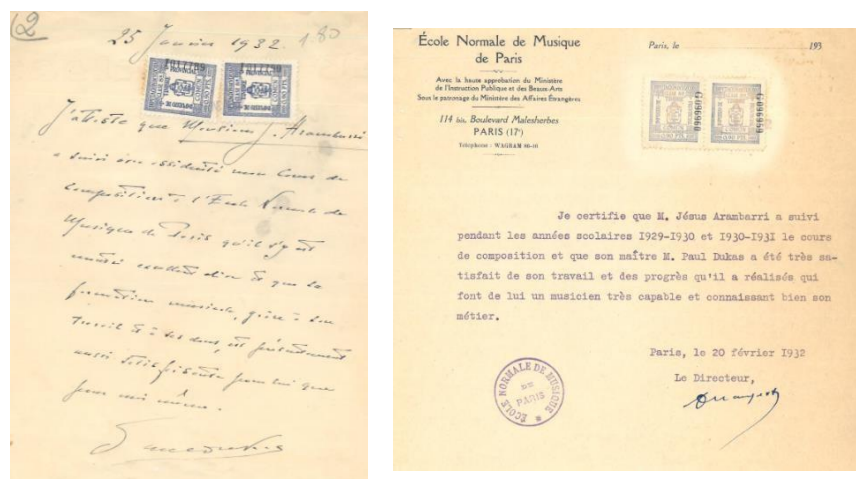 2
25 Janvier 1932.
180
J'atteste que Monsieur J. Arambarri
a suivi avec assiduité mon Cours de
Composition à l'Ecole Normale de
Musique de Paris qu'il s'y est
montré excellent élève et que sa
formation musicale, grâce à son
travail et à ses dons, est
aussi satisfaisante pour lui que
pour moi-même.
Paul Dukas
École Normale de Musique
de Paris
Avec la haute approbation du Ministère
de l'Instruction Publique et des Beaux-Arts
Sous le patronage du Ministère des Affaires Étrangères
114 bis, Boulevard Malesherbes
PARIS (17e)
Téléphone : WAGRAM 80-16
Paris, le 193
Je certifie que M. Jésus Arambarri a suivi
pendant les années scolaires I929-I930 et I930-I93I le cours
de composition et que son maître M. Paul Dukas a été très sa-
tisfait de son travail et des progrès qu'il a réalisés qui
font de lui un musicien très capable et connaissant bien son
métier.
Paris, le 20 février I932
Le Directeur,
ÉCOLE NORMALE DE MUSIQUE
DE
PARIS